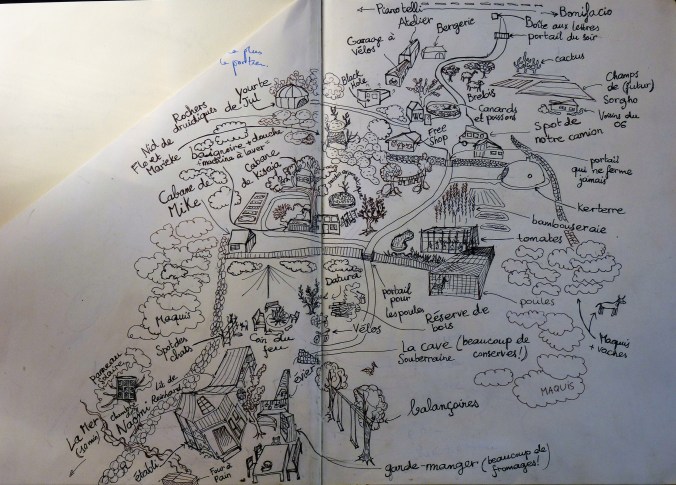 Pianottelli
Bonifacio
Atelier
Bergerie
Boîte aux lettres
portail du soir
Garage à
Vélos
cactus
Black
Hole
Brebis
Champs
de (futur)
Sorgho
Yourte
de Jul
Rochers
druidiques
Canards
et poissons
Voisins du
06
Nid
Flo et
Marieke
Free
Shop
Spot de
notre camion
Baignoire + douche
+ machine à laver
Cabane
de Kisaja
portail
qui ne ferme
jamais
Cabane de
Mike
kerterre
bambouseraie
tomates
Datura
portail
pour
les poules
poules
Maquis
Réserve de
bois
Vélos
Maquis
+
vaches
Spot des
chats
Coin du
feu
La cave (beaucoup de
conserves!)
Souberraine
évier
MAQUIS
Panneau
solaire
Lit de
Naomi
La Mer
(10 min)
balançoires
établi
Four à
Pain
garde-manger (beaucoup de
fromages!)